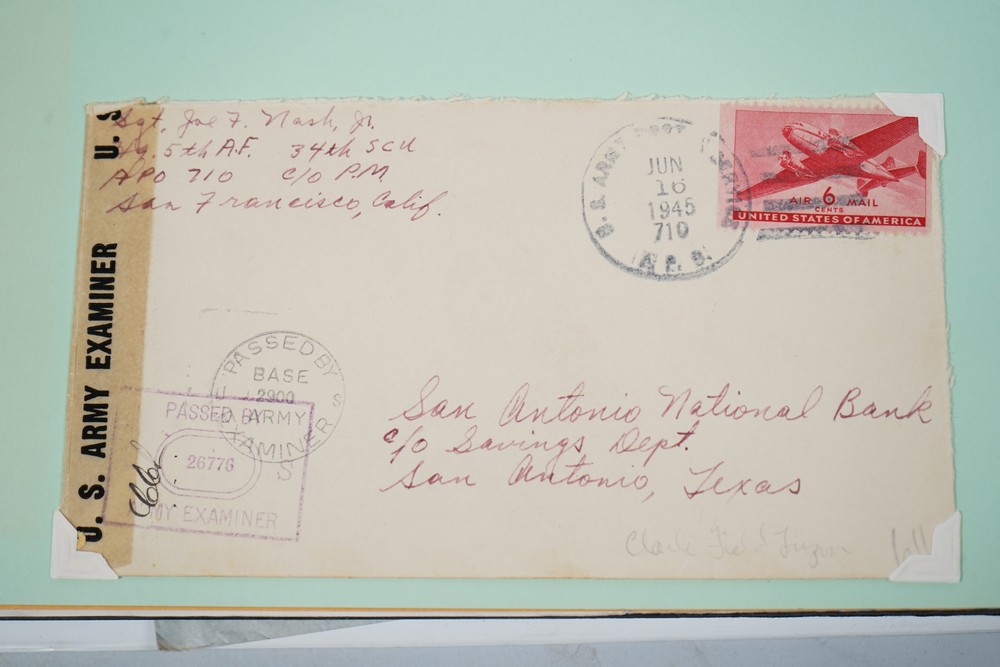 Sgt. Joe F. Nash, Jr.
Hq. 5th A.F. 34th SCU
APO 710 c/o P.M
San Francisco, Calif.
U.S. ARMY POSTAL SERVICE
JUN
16
1945
710
A.P.O.
AIR 6 MAIL
CENTS
UNITED STATES OF AMERICA
U. S. ARMY EXAMINER U. S
PASSED BY
BASE
2900
U S
ARMY
EXAMINER
PASSED BY
26776
S
MY EXAMINER
San Antonio National Bank
c/o Savings Dept.
San Antonio, Texas
Clark Field Luzon